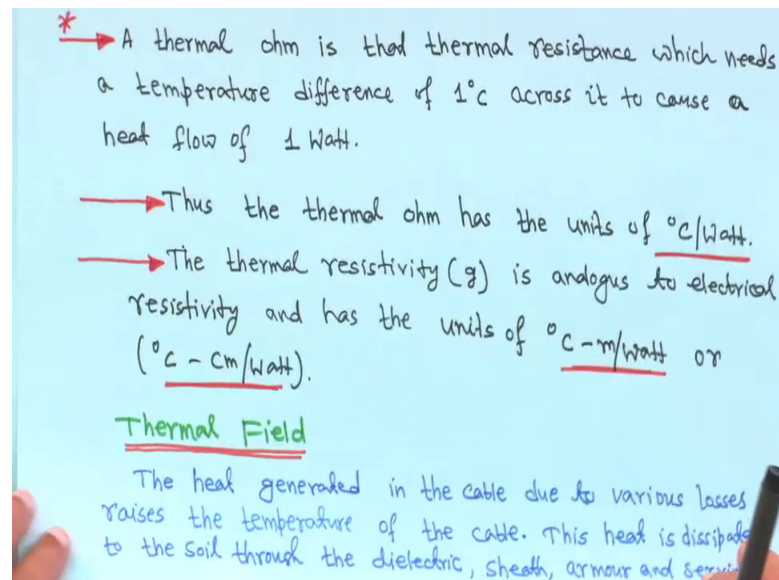 * → A thermal ohm is that thermal resistance which needs
a temperature difference of 1°C across it to cause a
heat flow of 1 Watt.
→ Thus the thermal ohm has the units of °C/Watt.
→ The thermal resistivity (g) is analogus to electrical
resistivity and has the units of °C-m/watt or
(°C - cm/watt).
Thermal Field
The heat generated in the cable due to various losses
raises the temperature of the cable. This heat is dissipate
to the soil through the dielectric, sheath, armour and